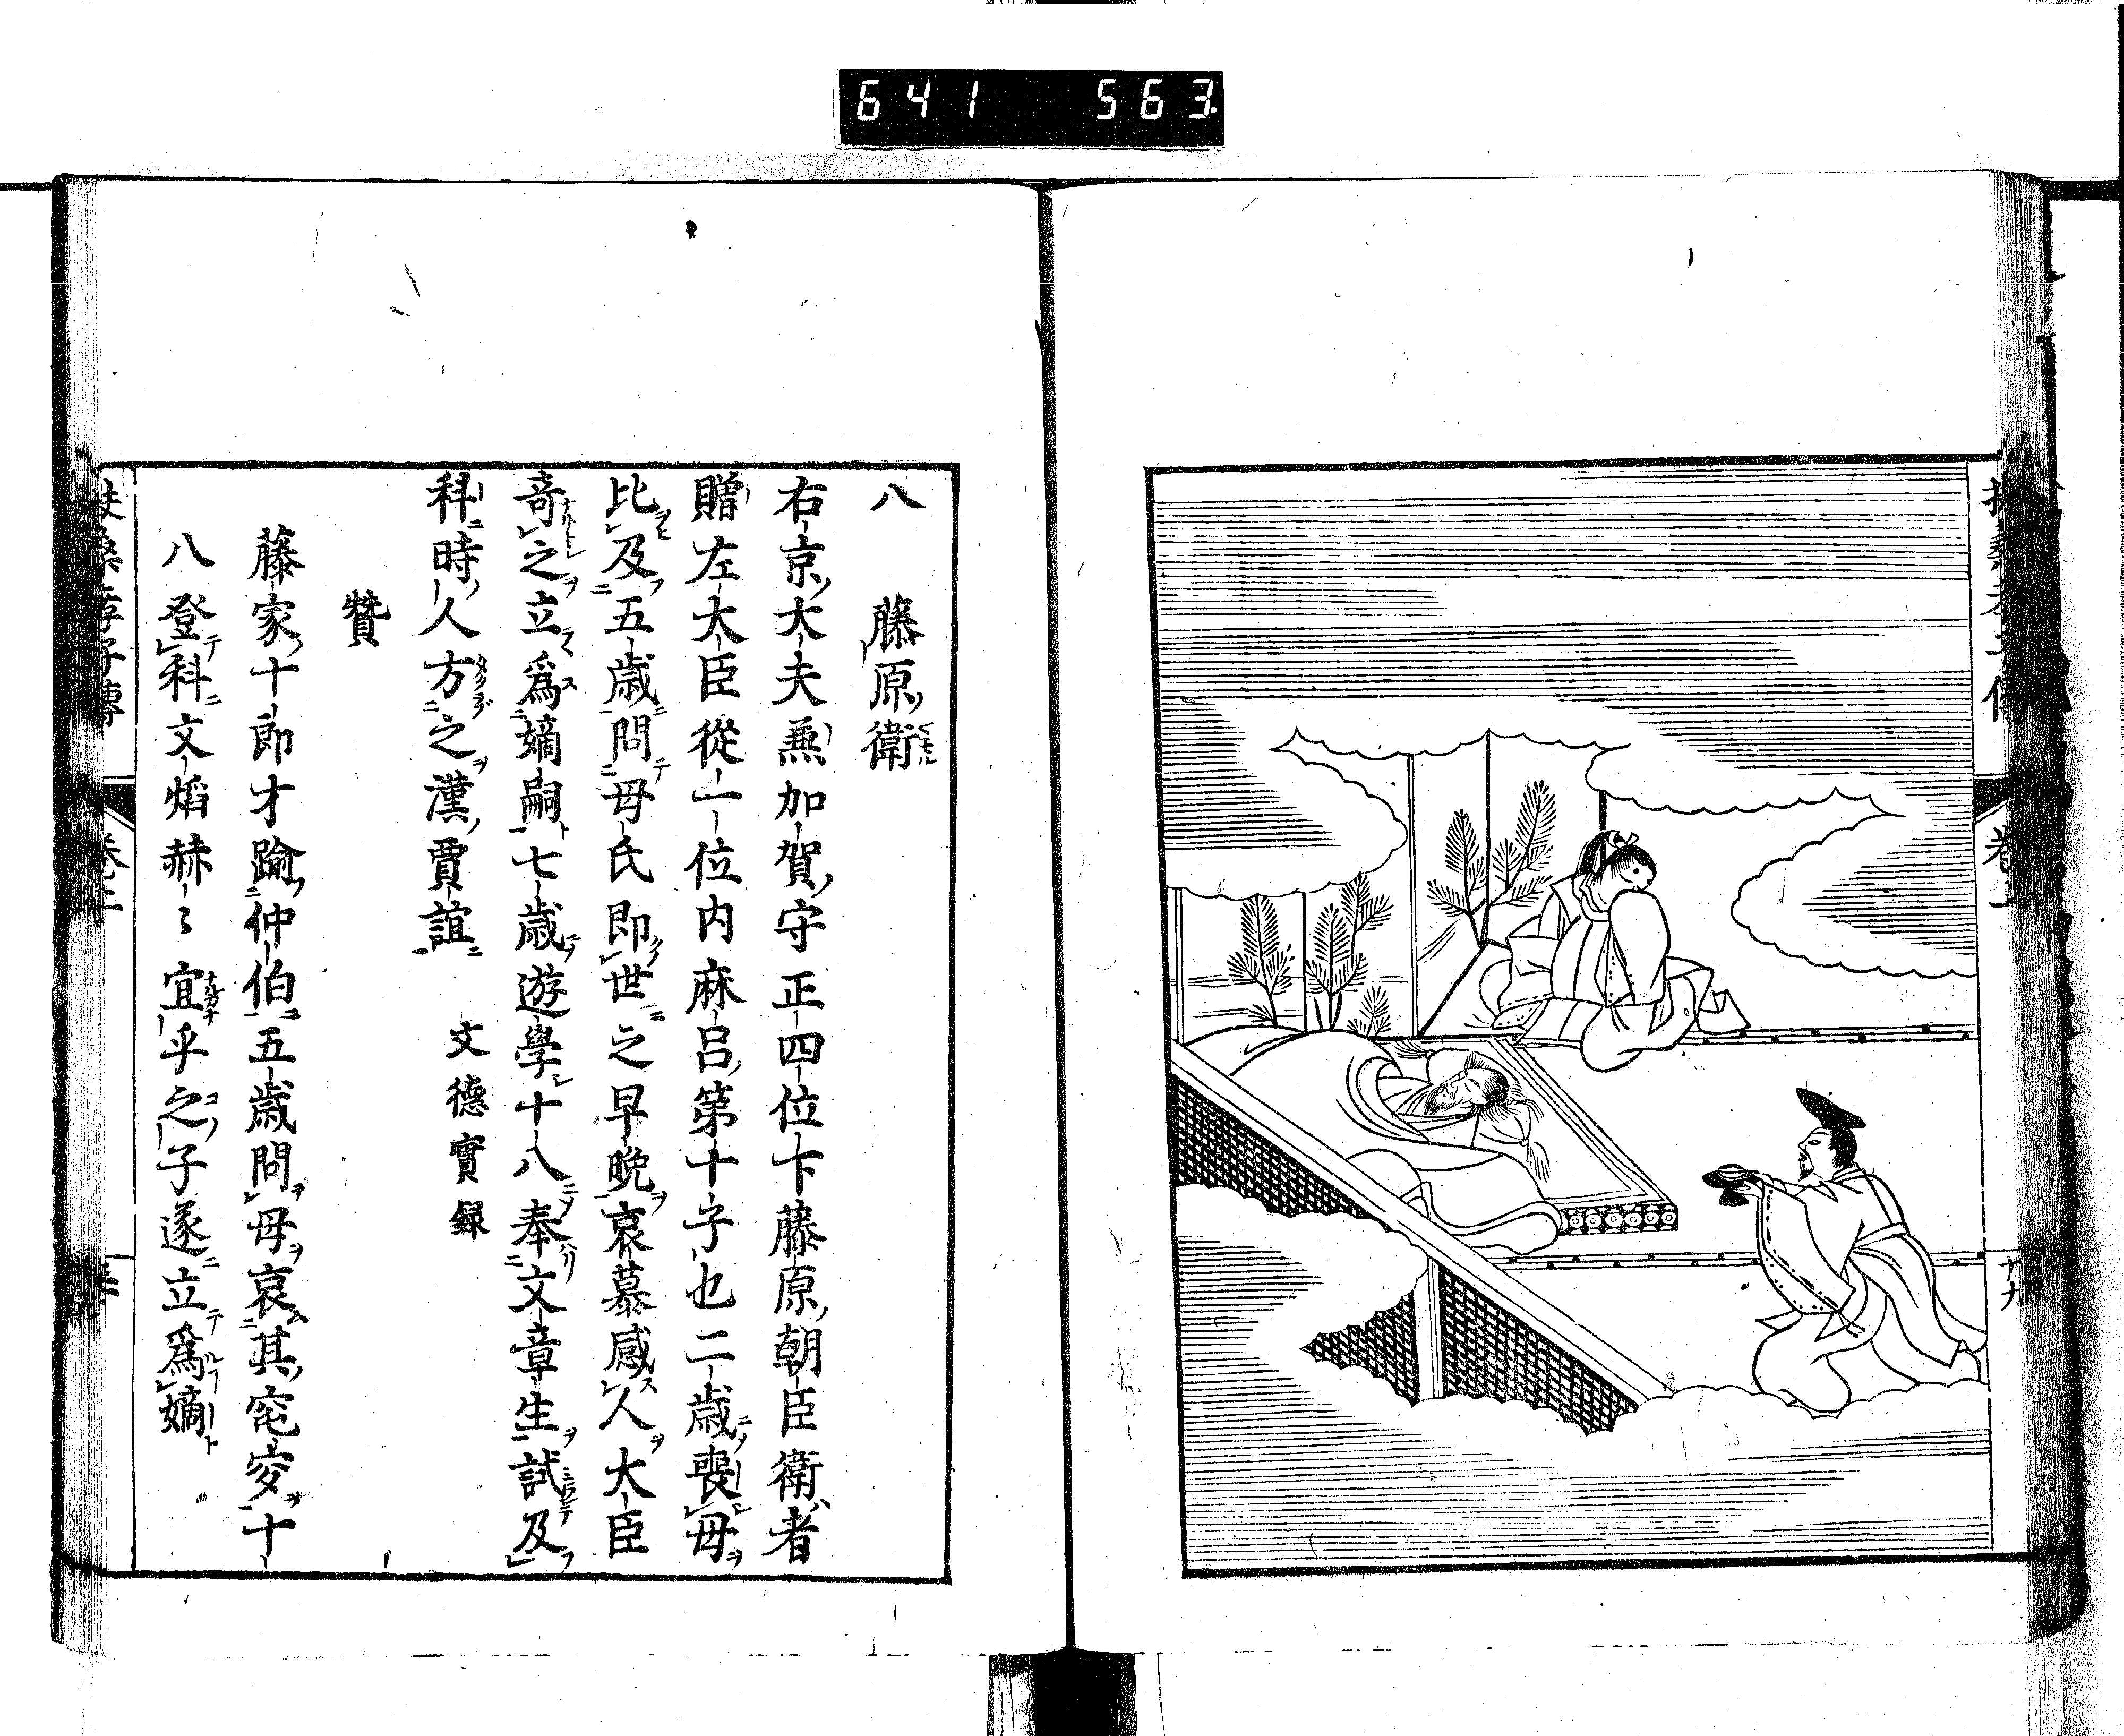 641 563
卷
十九
八 藤原衛
右京大夫兼加賀守正四位下藤原朝臣衛者
贈左大臣從一位内麻呂第十子也二歳喪母
比及五歳問母氏即世之早晩哀慕感人大臣
奇之立爲嫡嗣七歳遊學十八奉文章生試及
科時人方之漢賈誼 文德實錄
贊
藤家十郎才踰仲伯五歳問母哀其窀穸十
八登科文焰赫〻宜乎之子遂立爲嫡
扶桑孝子傳